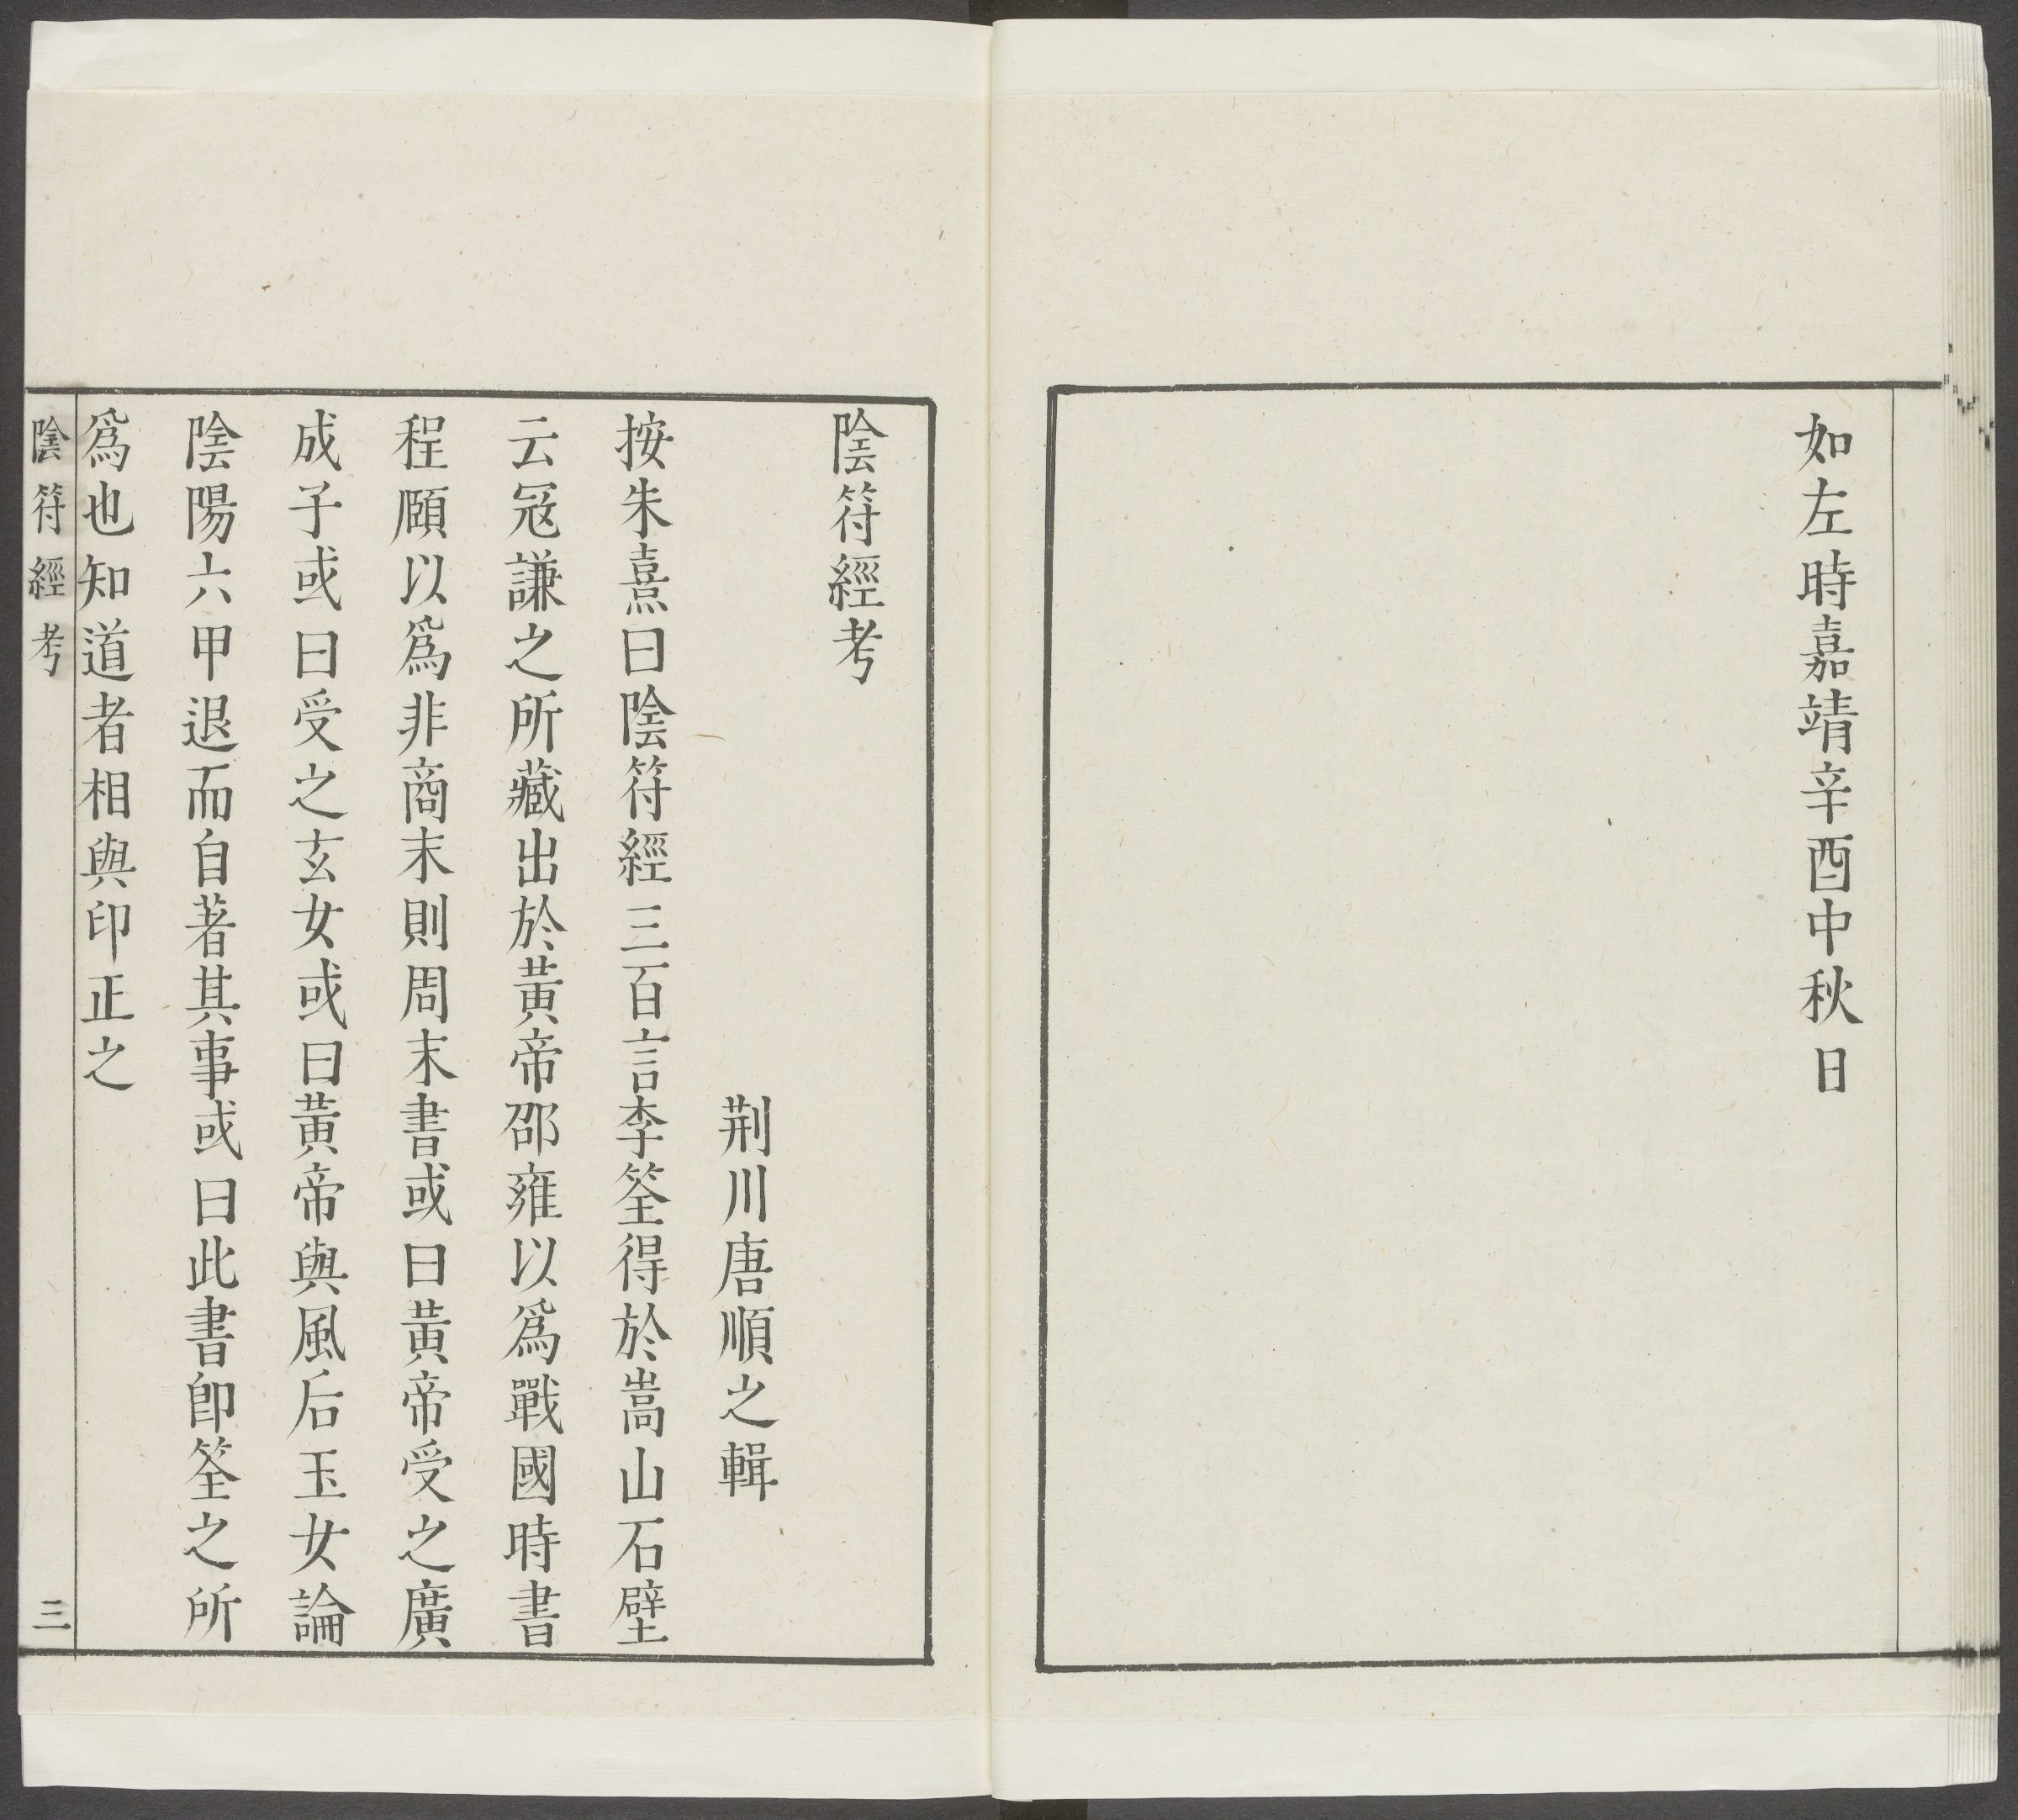 如左時嘉靖辛酉中秋日
陰符經考
荆川唐順之輯
按朱熹曰陰符經三百言李筌得於嵩山石壁
云冦謙之所藏出於黃帝邵雍以爲戰國時書
程頤以爲非商末則周末書或曰黃帝受之廣
成子或曰受之玄女或曰黃帝與風后玉女論
陰陽六甲退而自著其事或曰此書卽筌之所
爲也知道者相與印正之
陰符經考 三